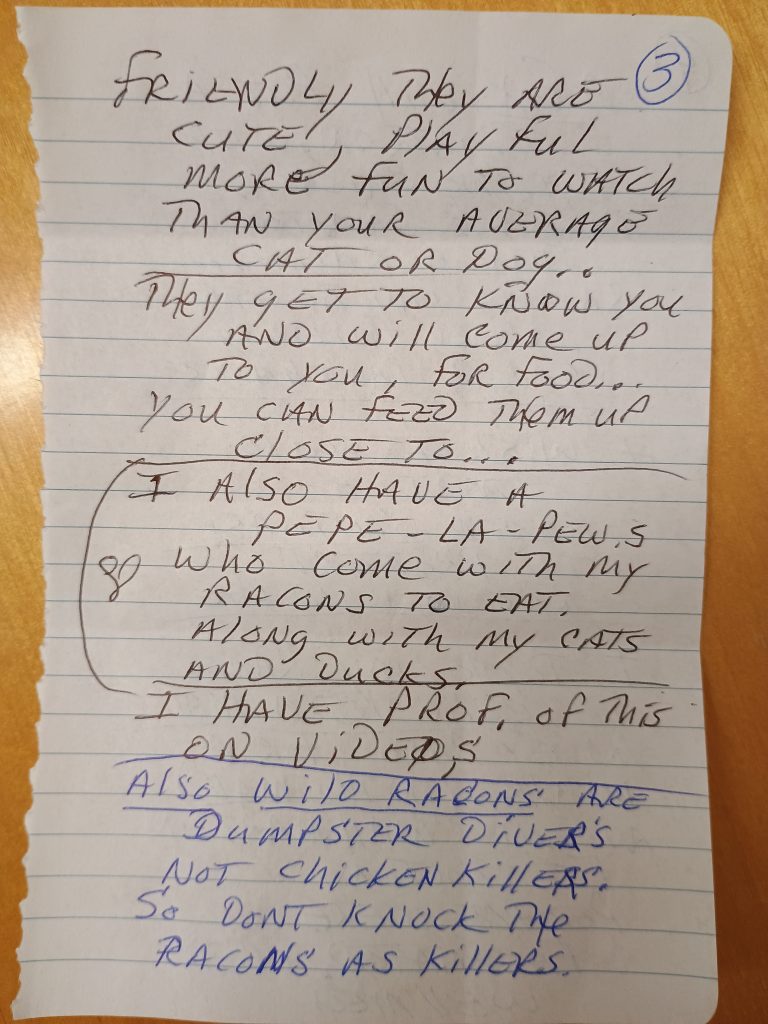 3
FRIENDLY THEY ARE
CUTE, PLAYFUL
MORE FUN TO WATCH
THAN YOUR AVERAGE
CAT OR DOG..
THEY GET TO KNOW YOU
AND WILL COME UP
TO YOU, FOR FOOD...
YOU CAN FEED THEM UP
CLOSE TO...
I ALSO HAVE A
PEPE-LA-PEW.S
WHO COME WITH MY
RACONS TO EAT.
ALONG WITH MY CATS
AND DUCKS.
I HAVE PROF. OF THIS
ON VIDEO,S
ALSO WILD RACONS ARE
DUMPSTER DIVER'S
NOT CHICKEN KILLERS.
SO DONT KNOCK THE
RACON'S AS KILLERS.